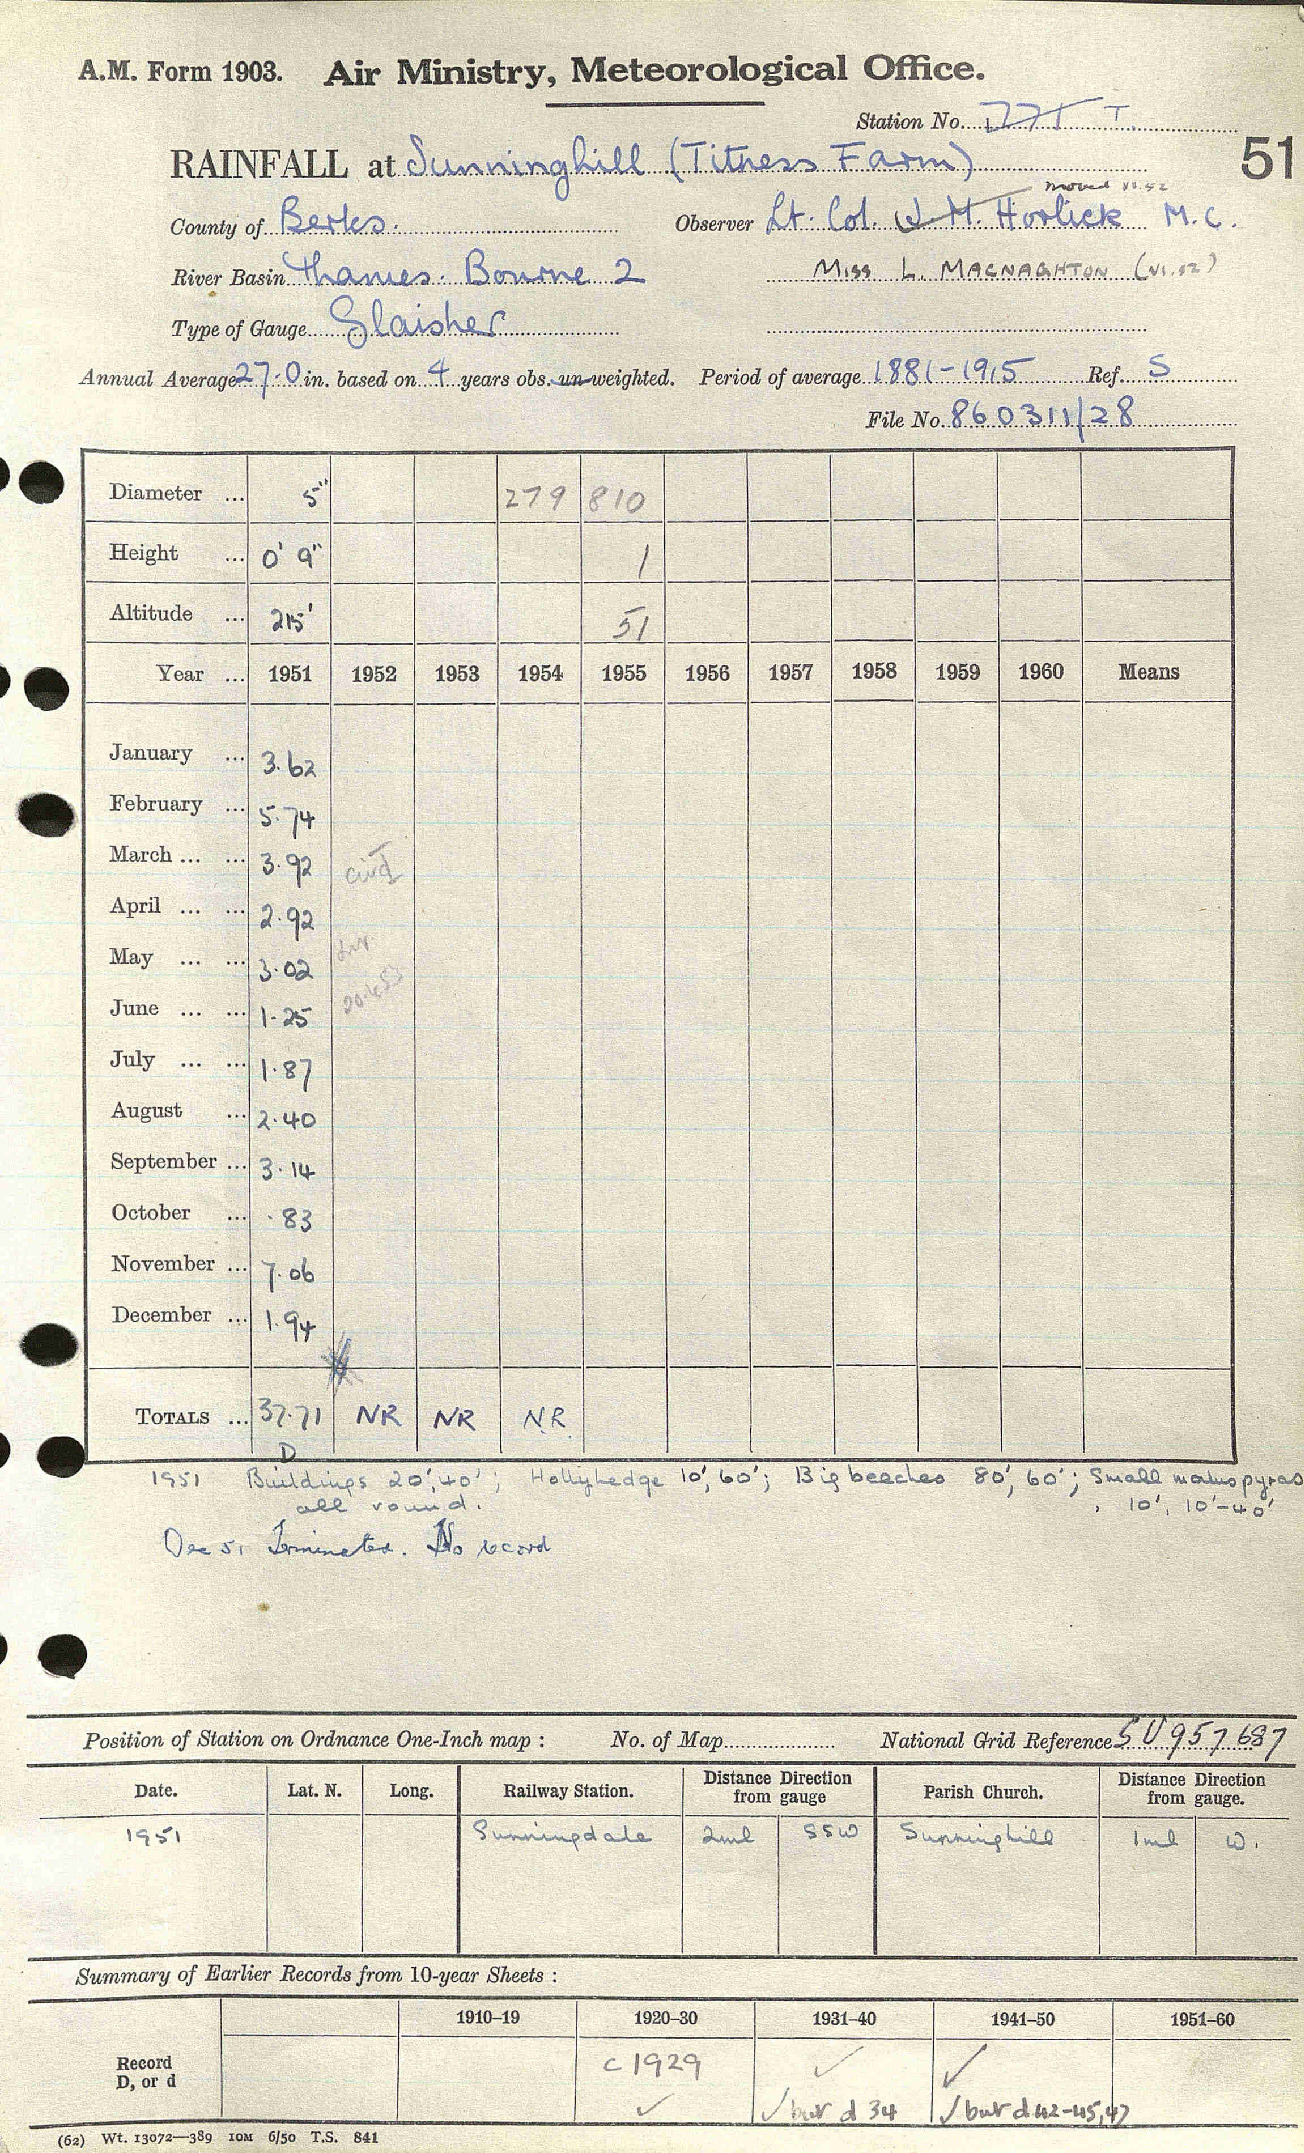 A.M. Form 1903. Air Ministry, Meteorological Office.
Station No. T.
51
RAINFALL at Sunninghill (Titness Farm)
moved VI.52
County of Berks. Observer Lt. Col. J. M. Horlick M.C.
River Basin Thames. Bourne 2 Miss L. MACNAGHTON (VI.52)
Type of Gauge Glaisher
Annual Average 27.0 in. based on 4 years obs. un-weighted. Period of average 1881-1915 Ref. S
File No. 860311/28
Diameter ... 5" 279 810
Height ... 0' 9" 1
Altitude ... 215' 51
Year ... 1951 1952 1953 1954 1955 1956 1957 1958 1959 1960 Means
January ... 3.62
February ... 5.74
March ... ... 3.92
April ... ... 2.92
May ... ... 3.02
June ... ... 1.25
July ... ... 1.87
August ... 2.40
September ... 3.14
October ... .83
November ... 7.06
December ... 1.94
TOTALS ... 37.71 NR NR NR
D
1951 Buildings 20', 40'; Hollyhedge 10', 60'; Big beeches 80', 60'; Small malus pyrus
all round. , 10', 10'-40'
Dec 51 Terminated. No record
Position of Station on Ordnance One-Inch map : No. of Map National Grid Reference SU 957687
Date. Lat. N. Long. Railway Station. Distance Direction from gauge Parish Church. Distance Direction from gauge.
1951 Sunningdale 2ml SSW Sunninghill 1ml W.
Summary of Earlier Records from 10-year Sheets :
1910–19 1920–30 1931–40 1941–50 1951–60
Record D, or d c 1929 ✓ ✓
✓ ✓ but d 34 ✓ but d 42-45, 47
(62) Wt. 13072—389 10M 6/50 T.S. 841